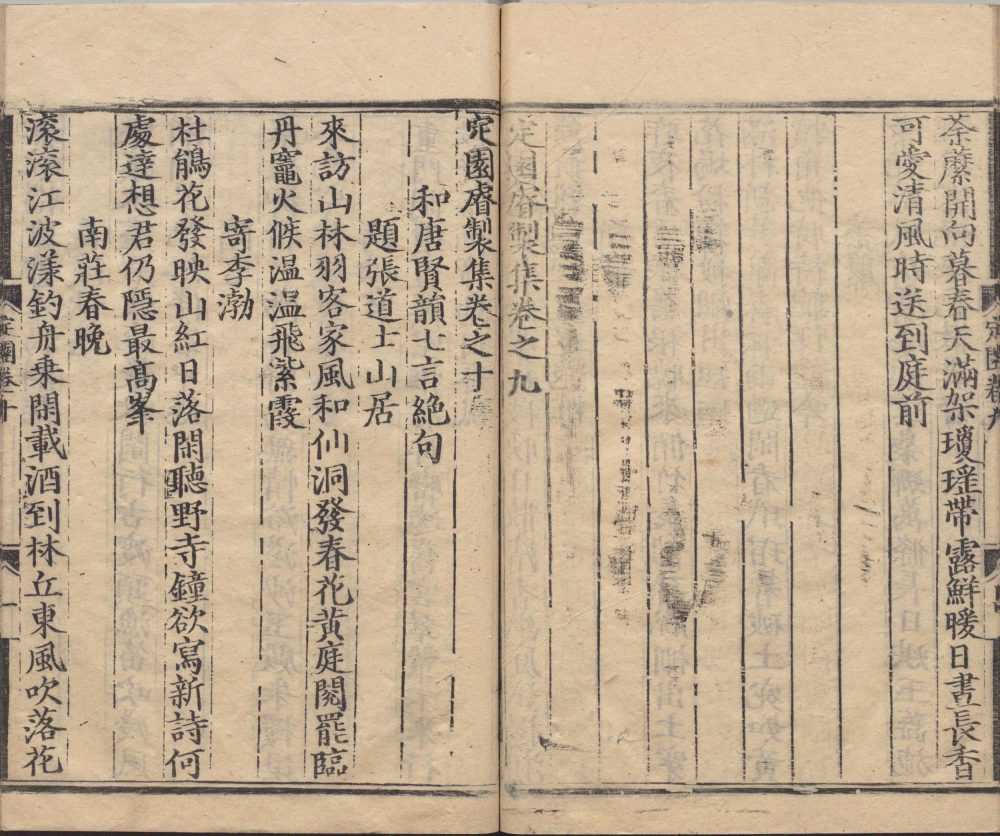 荼䕷開向暮春天滿架瓊瑤帶露鮮暖日晝長香
可愛清風時送到庭前
定園睿製集卷之九
定園卷九
定園睿製集卷之十
和唐賢韻七言絶句
題張道士山居
來訪山林羽客家風和仙洞發春花黃庭閱罷臨
丹竈火候温温飛紫霞
寄李渤
杜鵑花發映山紅日落閑聽野寺鐘欲寫新詩何
處達想君仍隱最高峯
南莊春晚
滾滾江波漾釣舟乗閑載酒到林丘東風吹落花
定園卷十
一